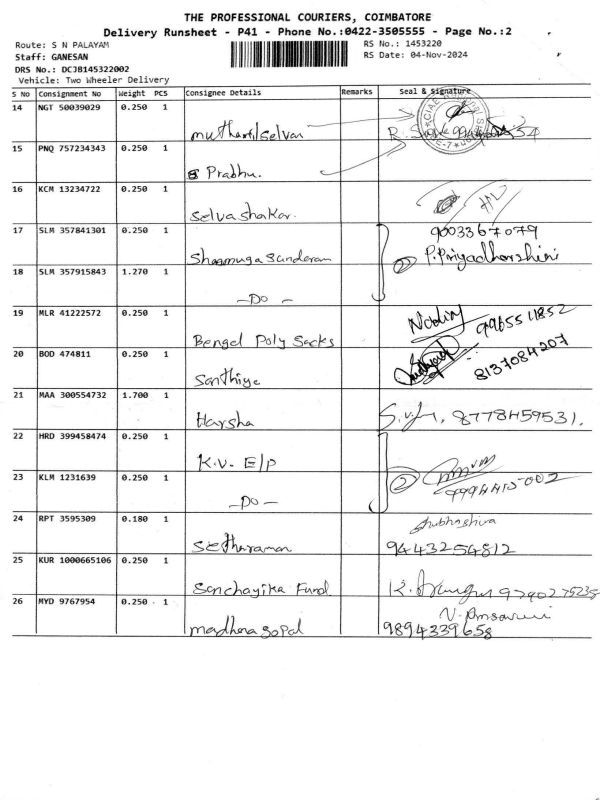 THE PROFESSIONAL COURIERS, COIMBATORE
Delivery Runsheet - P41 - Phone No.:0422-3505555 - Page No.:2
Route: S N PALAYAM
RS No.: 1453220
Staff: GANESAN
RS Date: 04-Nov-2024
DRS No.: DCJB145322002
Vehicle: Two Wheeler Delivery
S No Consignment No Weight PCS Consignee Details Remarks Seal & Signature
14 NGT 50039029 0.250 1
15 PNQ 757234343 0.250 1
Prabhu.
16 KCM 13234722 0.250 1
Selvashakar.
17 SLM 357841301 0.250 1 9003367079
Shanmuga Sundaram P. Priyadharshini
18 SLM 357915843 1.270 1 2
- Do -
19 MLR 41222572 0.250 1
Bengal Poly Sacks 9965511852
20 BOD 474811 0.250 1
Santhiya 8137084207
21 MAA 300554732 1.700 1
Harsha 8778459531.
22 HRD 399458474 0.250 1
K.V. E/P
23 KLM 1231639 0.250 1 2
- Do - 9994415002
24 RPT 3595309 0.180 1
Setharaman 9443254812
25 KUR 1000665106 0.250 1
Sanchayika Fund
26 MYD 9767954 0.250 1
Madhanagopal 9894339658